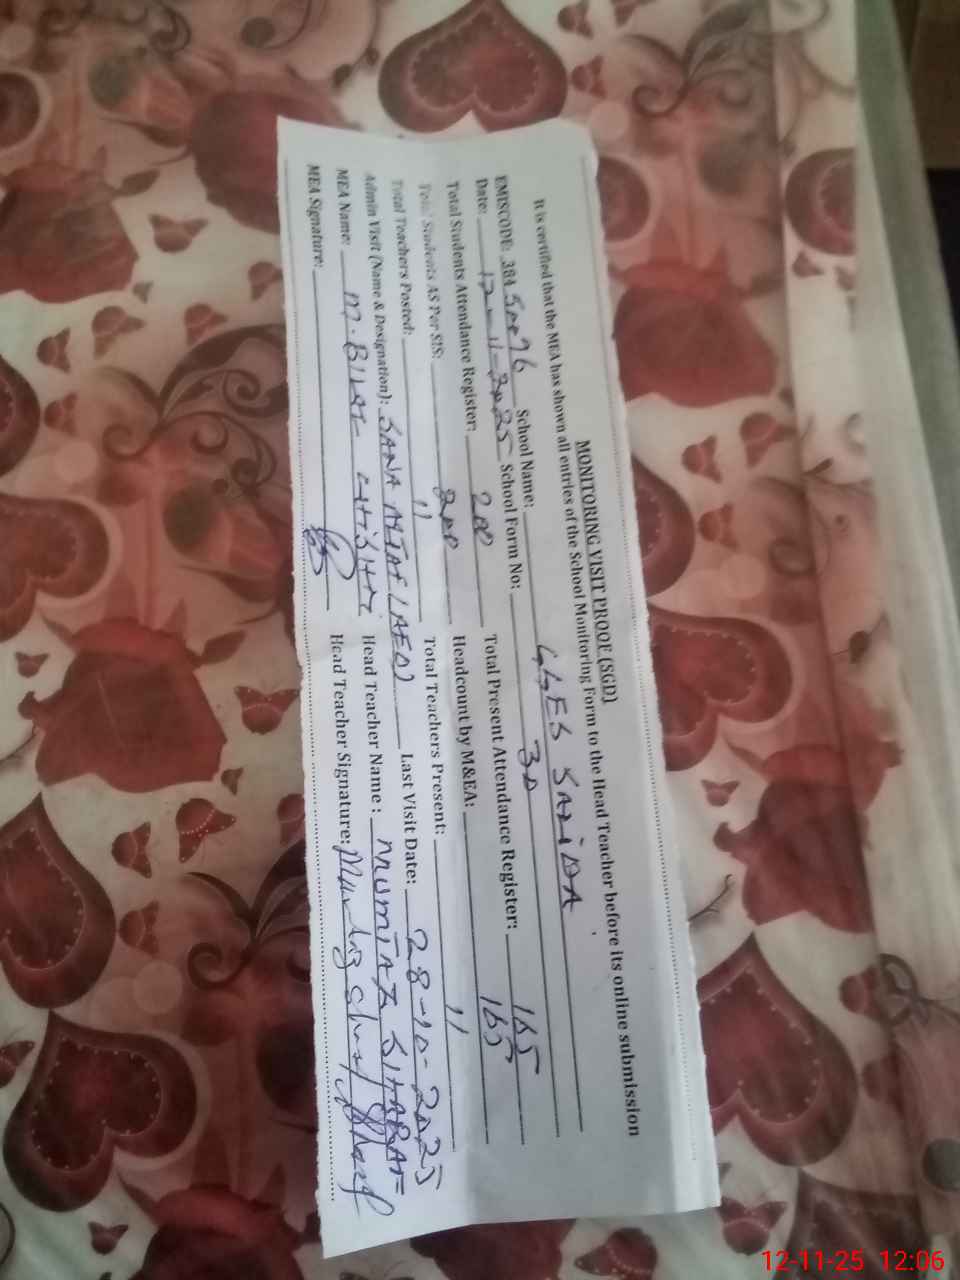 MONITORING VISIT PROOF (SGD)
It is certified that the MEA has shown all entries of the School Monitoring Form to the Head Teacher before its online submission
EMISCODE: 384 50096 School Name: GGES SAHIDA
Date: 12-11-2025 School Form No: 30
Total Students Attendance Register: 200 Total Present Attendance Register: 165
Total Students AS Per SIS: 200 Headcount by M&EA: 165
Total Teachers Posted: 11 Total Teachers Present: 11
Admin Visit (Name & Designation): SANA ALTAF (AEO) Last Visit Date: 28-10-2025
MEA Name: M. BILAL Head Teacher Name: MUMTAZ SHARAF
MEA Signature: Head Teacher Signature:
12-11-25 12:06